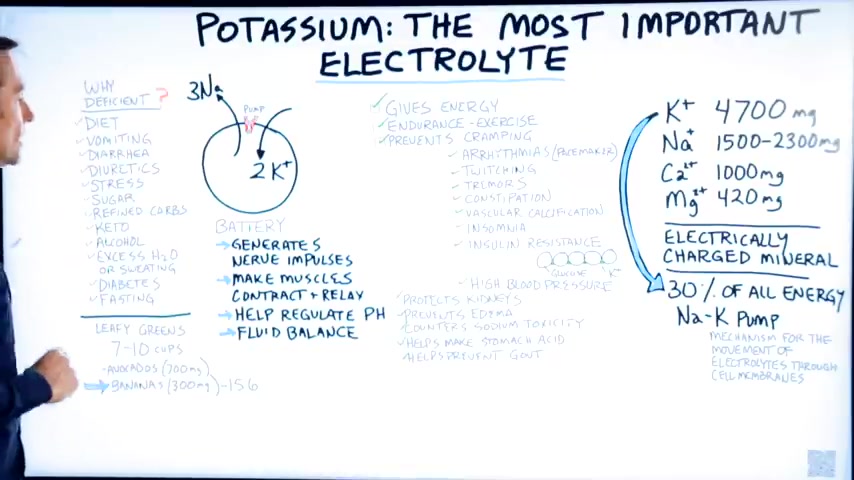 POTASSIUM: THE MOST IMPORTANT
ELECTROLYTE
WHY
DEFICIENT?
✓DIET
✓VOMITING
✓DIARRHEA
✓DIURETICS
✓STRESS
✓SUGAR
✓REFINED CARBS
✓KETO
✓ALCOHOL
✓EXCESS H2O
OR SWEATING
✓DIABETES
✓FASTING
LEAFY GREENS
7-10 CUPS
·AVOCADOS (700mg)
→BANANAS (300mg)-15G
3Na
PUMP
2K+
BATTERY
→GENERATES
NERVE IMPULSES
→MAKE MUSCLES
CONTRACT + RELAY
→HELP REGULATE PH
→FLUID BALANCE
✓GIVES ENERGY
✓ENDURANCE-EXERCISE
✓PREVENTS CRAMPING
✓ARRHYTHMIAS (PACEMAKER)
✓TWITCHING
✓TREMORS
✓CONSTIPATION
✓VASCULAR CALCIFICATION
✓INSOMNIA
✓INSULIN RESISTANCE
GLUCOSE K+
✓HIGH BLOOD PRESSURE
✓PROTECTS KIDNEYS
✓PREVENTS EDEMA
✓COUNTERS SODIUM TOXICITY
✓HELPS MAKE STOMACH ACID
✓HELPS PREVENT GOUT
K+ 4700 mg
Na+ 1500-2300mg
Ca2+ 1000mg
Mg2+ 420mg
ELECTRICALLY
CHARGED MINERAL
30% OF ALL ENERGY
Na-K PUMP
MECHANISM FOR THE
MOVEMENT OF
ELECTROLYTES THROUGH
CELL MEMBRANES